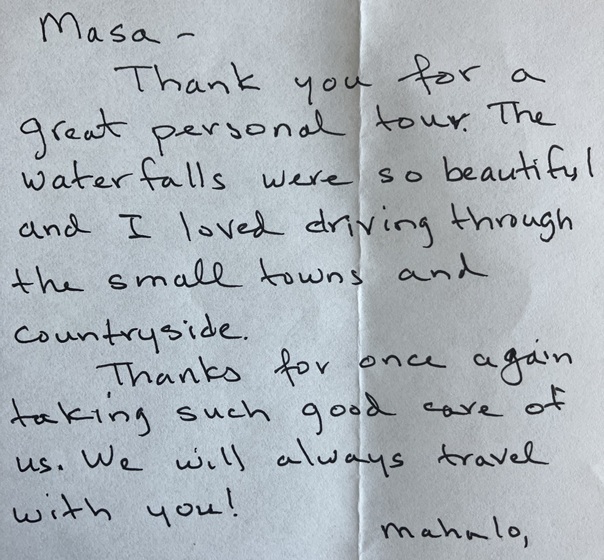 Masa -
Thank you for a
great personal tour. The
waterfalls were so beautiful
and I loved driving through
the small towns and
countryside.
Thanks for once again
taking such good care of
us. We will always travel
with you!
Mahalo,